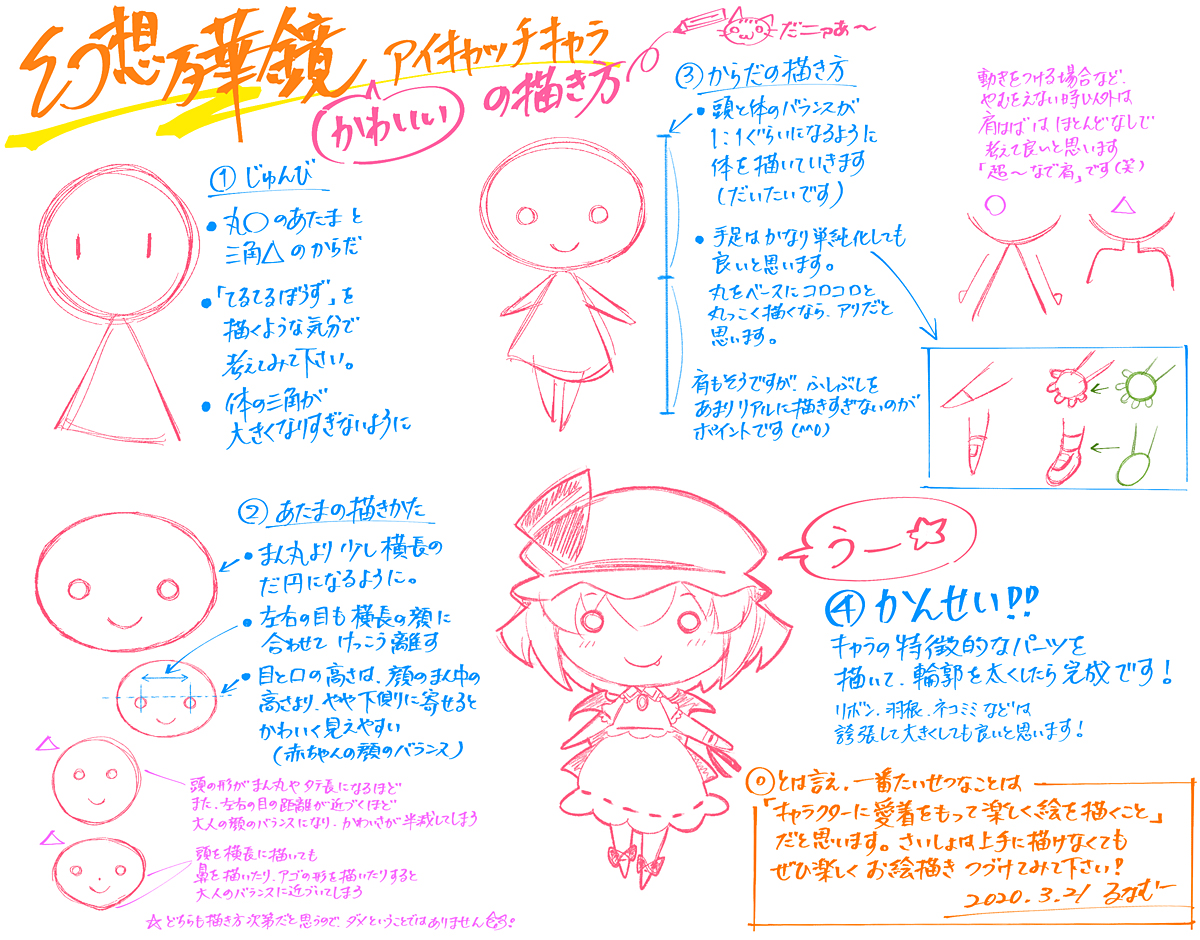 幻想万華鏡 アイキャッチキャラ
かわいい の描き方
だニァあ〜
① じゅんび
・丸○のあたまと
三角△のからだ
・「てるてるぼうず」を
描くような気分で
考えてみて下さい。
・体の三角が
大きくなりすぎないように
② あたまの描きかた
・まん丸より少し横長の
だ円になるように。
・左右の目も横長の顔に
合わせてけっこう離す
・目と口の高さは、顔のまん中の
高さより、やや下側に寄せると
かわいく見えやすい
(赤ちゃんの顔のバランス)
△
頭の形がまん丸やタテ長になるほど
また、左右の目の距離が近づくほど
大人の顔のバランスになり、かわいさが半減してしまう
△
頭を横長に描いても
鼻を描いたり、アゴの形を描いたりすると
大人のバランスに近づいてしまう
☆どちらも描き方次第だと思うので、ダメということではありません
③ からだの描き方
・頭と体のバランスが
1:1ぐらいになるように
体を描いていきます
(だいたいです)
・手足はかなり単純化しても
良いと思います。
丸をベースにコロコロと
丸っこく描くなら、アリだと
思います。
肩もそうですが、ふしぶしを
あまりリアルに描きすぎないのが
ポイントです(^^0)
動きをつける場合など、
やむをえない時以外は
肩はばは、ほとんどなしで
考えて良いと思います
「超〜なで肩」です(笑)
○ △
うー☆
④ かんせい!!
キャラの特徴的なパーツを
描いて、輪郭を太くしたら完成です!
リボン、羽根、ネコミミなどは
誇張して大きくしても良いと思います!
◎とは言え、一番たいせつなことは
「キャラクターに愛着をもって楽しく絵を描くこと」
だと思います。さいしょは上手に描けなくても
ぜひ楽しくお絵描きつづけてみて下さい!
2020.3.21 るなむー